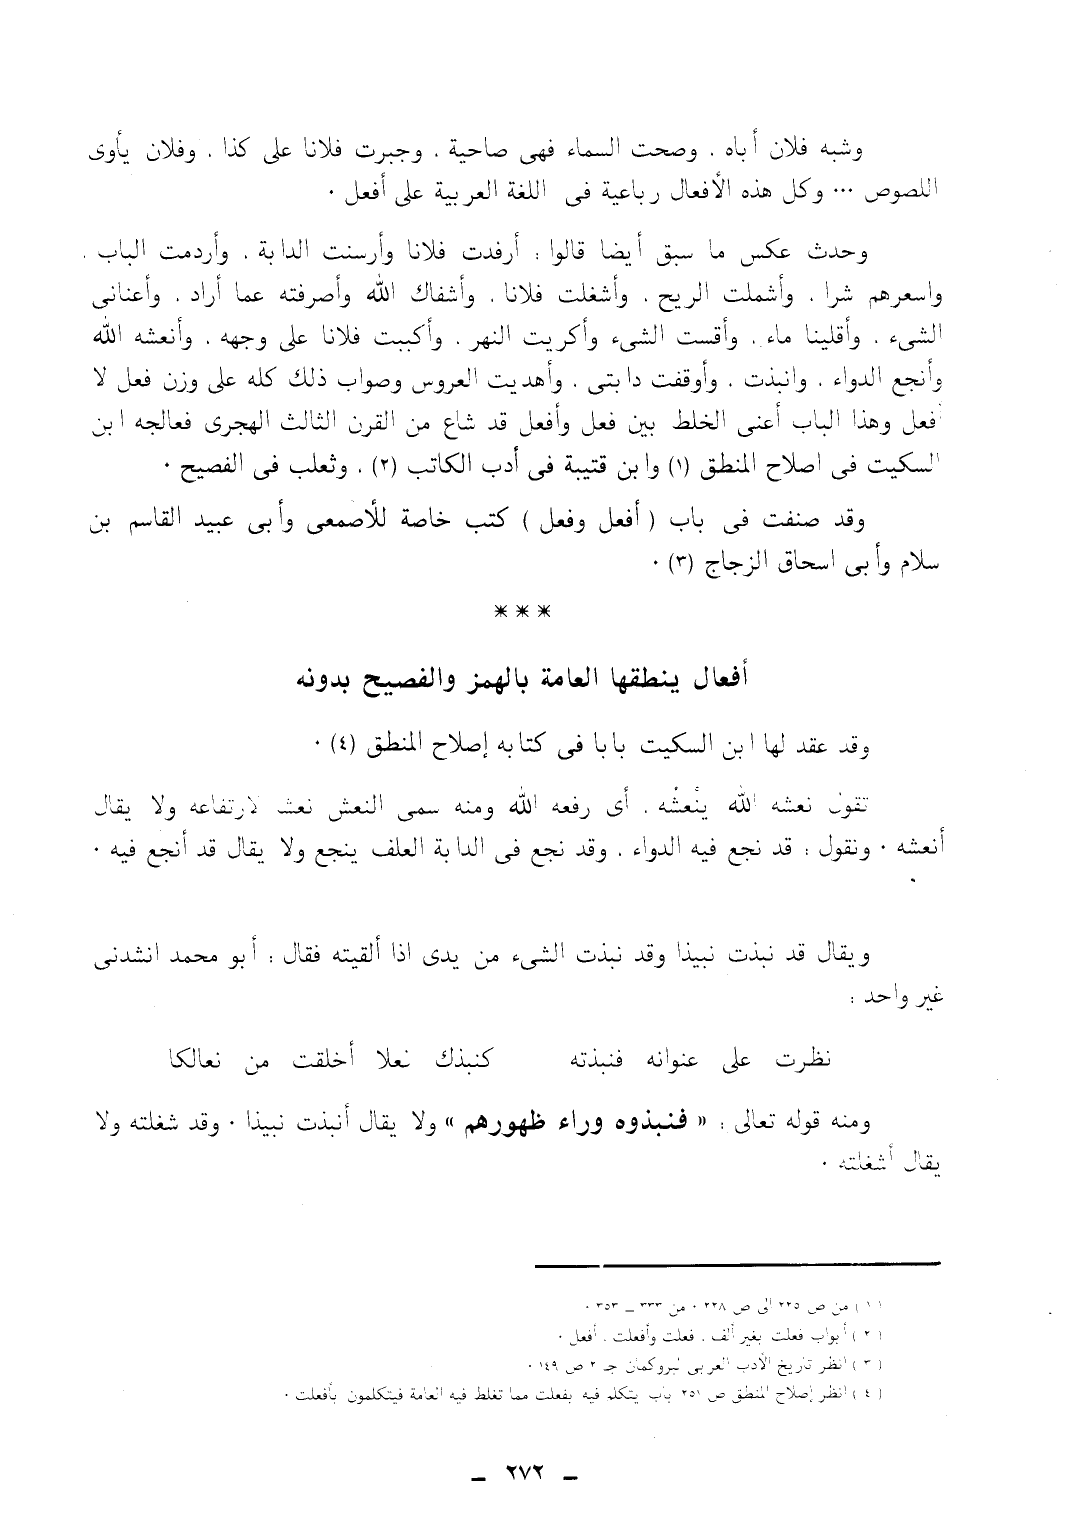 وشبه فلان أباه ، وصحت السماء فهى صاحية ، وجبرت فلانا على كذا ، وفلان يأوى
اللصوص ... وكل هذه الأفعال رباعية فى اللغة العربية على أفعل ٠
وحدث عكس ما سبق أيضا قالوا : أرفدت فلانا وأرسنت الدابة ، وأردمت الباب ،
واسعرهم شرا ، وأشملت الريح ، وأشغلت فلانا ، وأشفاك الله وأصرفته عما أراد ، وأعنانى
الشىء ، وأقلينا ماء ، وأقست الشىء وأكريت النهر ، وأكببت فلانا على وجهه ، وأنعشه الله
وأنجع الدواء ، وانبذت ، وأوقفت دابتى ، وأهديت العروس وصواب ذلك كله على وزن فعل لا
أفعل وهذا الباب أعنى الخلط بين فعل وأفعل قد شاع من القرن الثالث الهجرى فعالجه ابن
السكيت فى اصلاح المنطق (١) وابن قتيبة فى أدب الكاتب (٢) ، وثعلب فى الفصيح ٠
وقد صنفت فى باب ( أفعل وفعل ) كتب خاصة للأصمعى وأبى عبيد القاسم بن
سلام وأبى اسحاق الزجاج (٣) ٠
***
أفعال ينطقها العامة بالهمز والفصيح بدونه
وقد عقد لها ابن السكيت بابا فى كتابه إصلاح المنطق (٤) ٠
تقول نعشه الله ينْعشُه ، أى رفعه الله ومنه سمى النعش نعشا لارتفاعه ولا يقال
أنعشه ٠ ونقول : قد نجع فيه الدواء ، وقد نجع فى الدابة العلف ينجع ولا يقال قد أنجع فيه ٠
ويقال قد نبذت نبيذا وقد نبذت الشىء من يدى اذا ألقيته فقال : أبو محمد انشدنى
غير واحد :
نظرت على عنوانه فنبذته كنبذك نعلا أخلقت من نعالكا
ومنه قوله تعالى : « فنبذوه وراء ظهورهم » ولا يقال أنبذت نبيذا ٠ وقد شغلته ولا
يقال أشغلته ٠
(١) من ص ٢٢٥ الى ص ٢٢٨ ٠ من ٣٣٣ ـ ٣٥٣ ٠
(٢) أبواب فعلت بغير ألف ، فعلت وأفعلت ، أفعل ٠
(٣) انظر تاريخ الأدب العربى لبروكمان جـ ٢ ص ١٤٩ ٠
(٤) انظر إصلاح المنطق ص ٢٥١ باب يتكلم فيه بفعلت مما تغلط فيه العامة فيتكلمون بأفعلت ٠
ـ ٢٧٢ ـ